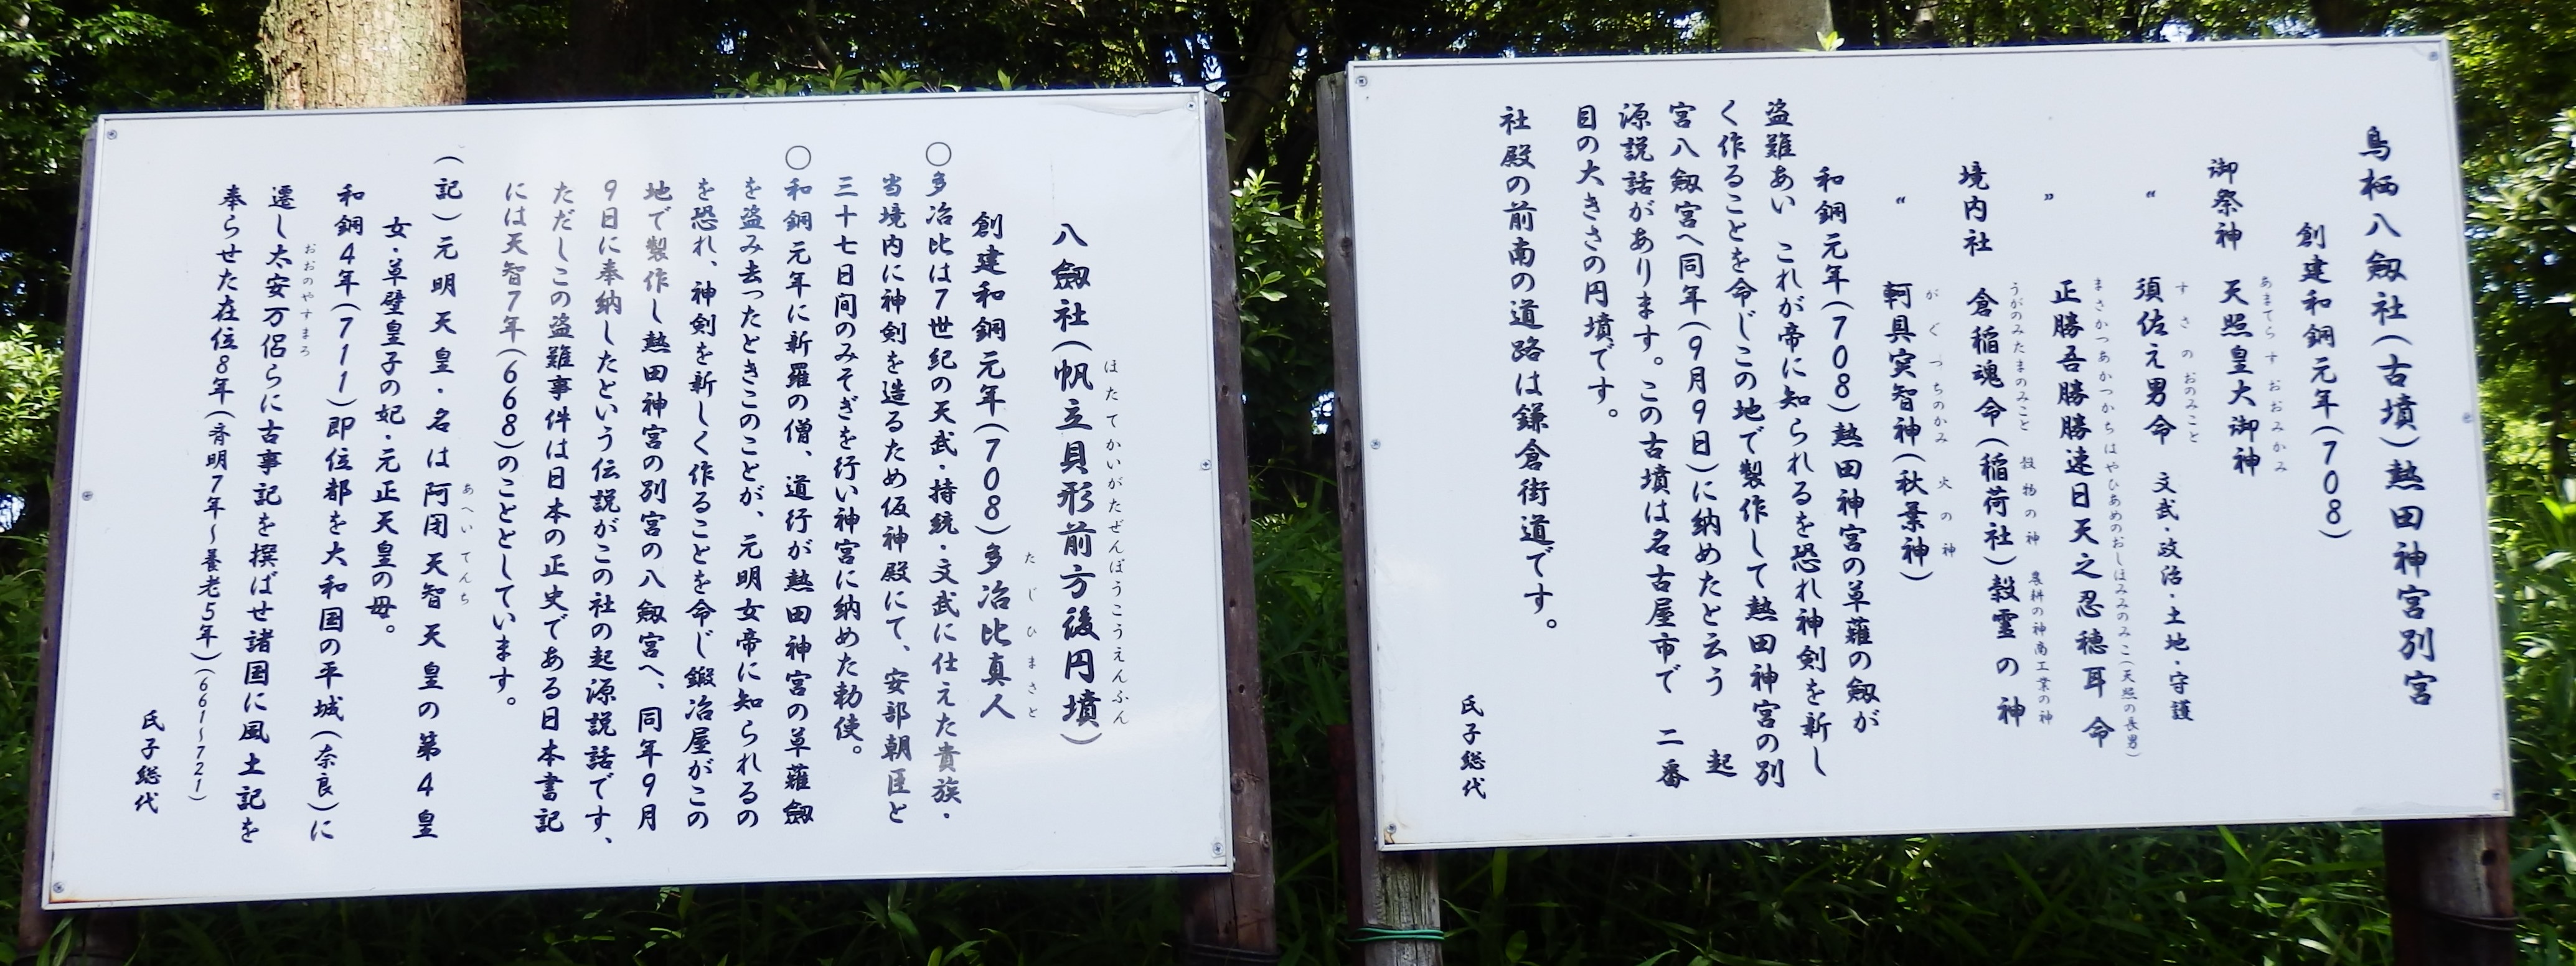 鳥栖八劔社(古墳)熱田神宮別宮
創建和銅元年(708)
あまてらすおおみかみ
御祭神 天照皇大御神
すさのおのみこと
〃 須佐之男命 文武・政治・土地・守護
まさかつあかつかちはやひあめのおしほみみのみこ(天照の長男)
〃 正勝吾勝勝速日天之忍穂耳命
うがのみたまのみこと 穀物の神 農耕の神商工業の神
境内社 倉稲魂命(稲荷社)穀霊の神
がぐつちのかみ 火の神
〃 軻具突智神(秋葉神)
和銅元年(708)熱田神宮の草薙の劔が
盗難あい これが帝に知られるを恐れ神剣を新し
く作ることを命じこの地で製作して熱田神宮の別
宮八劔宮へ同年(9月9日)に納めたと云う 起
源説話があります。この古墳は名古屋市で 二番
目の大きさの円墳です。
社殿の前南の道路は鎌倉街道です。
氏子総代
ほたてかいがたぜんぽうこうえんふん
八劔社(帆立貝形前方後円墳)
たじひまさと
創建和銅元年(708)多治比真人
○多治比は7世紀の天武・持統・文武に仕えた貴族・
当境内に神剣を造るため仮神殿にて、安部朝臣と
三十七日間のみそぎを行い神宮に納めた勅使。
○和銅元年に新羅の僧、道行が熱田神宮の草薙劔
を盗み去ったときこのことが、元明女帝に知られるの
を恐れ、神剣を新しく作ることを命じ鍛冶屋がこの
地で製作し熱田神宮の別宮の八劔宮へ、同年9月
9日に奉納したという伝説がこの社の起源説話です、
ただしこの盗難事件は日本の正史である日本書記
には天智7年(668)のこととしています。
あへいてんち
(記)元明天皇・名は阿閇 天智天皇の第4皇
女・草壁皇子の妃・元正天皇の母。
和銅4年(711)即位都を大和国の平城(奈良)に
おおのやすまろ
遷し太安万侶らに古事記を撰ばせ諸国に風土記を
奉らせた在位8年(斉明7年~養老5年)(661~721)
氏子総代